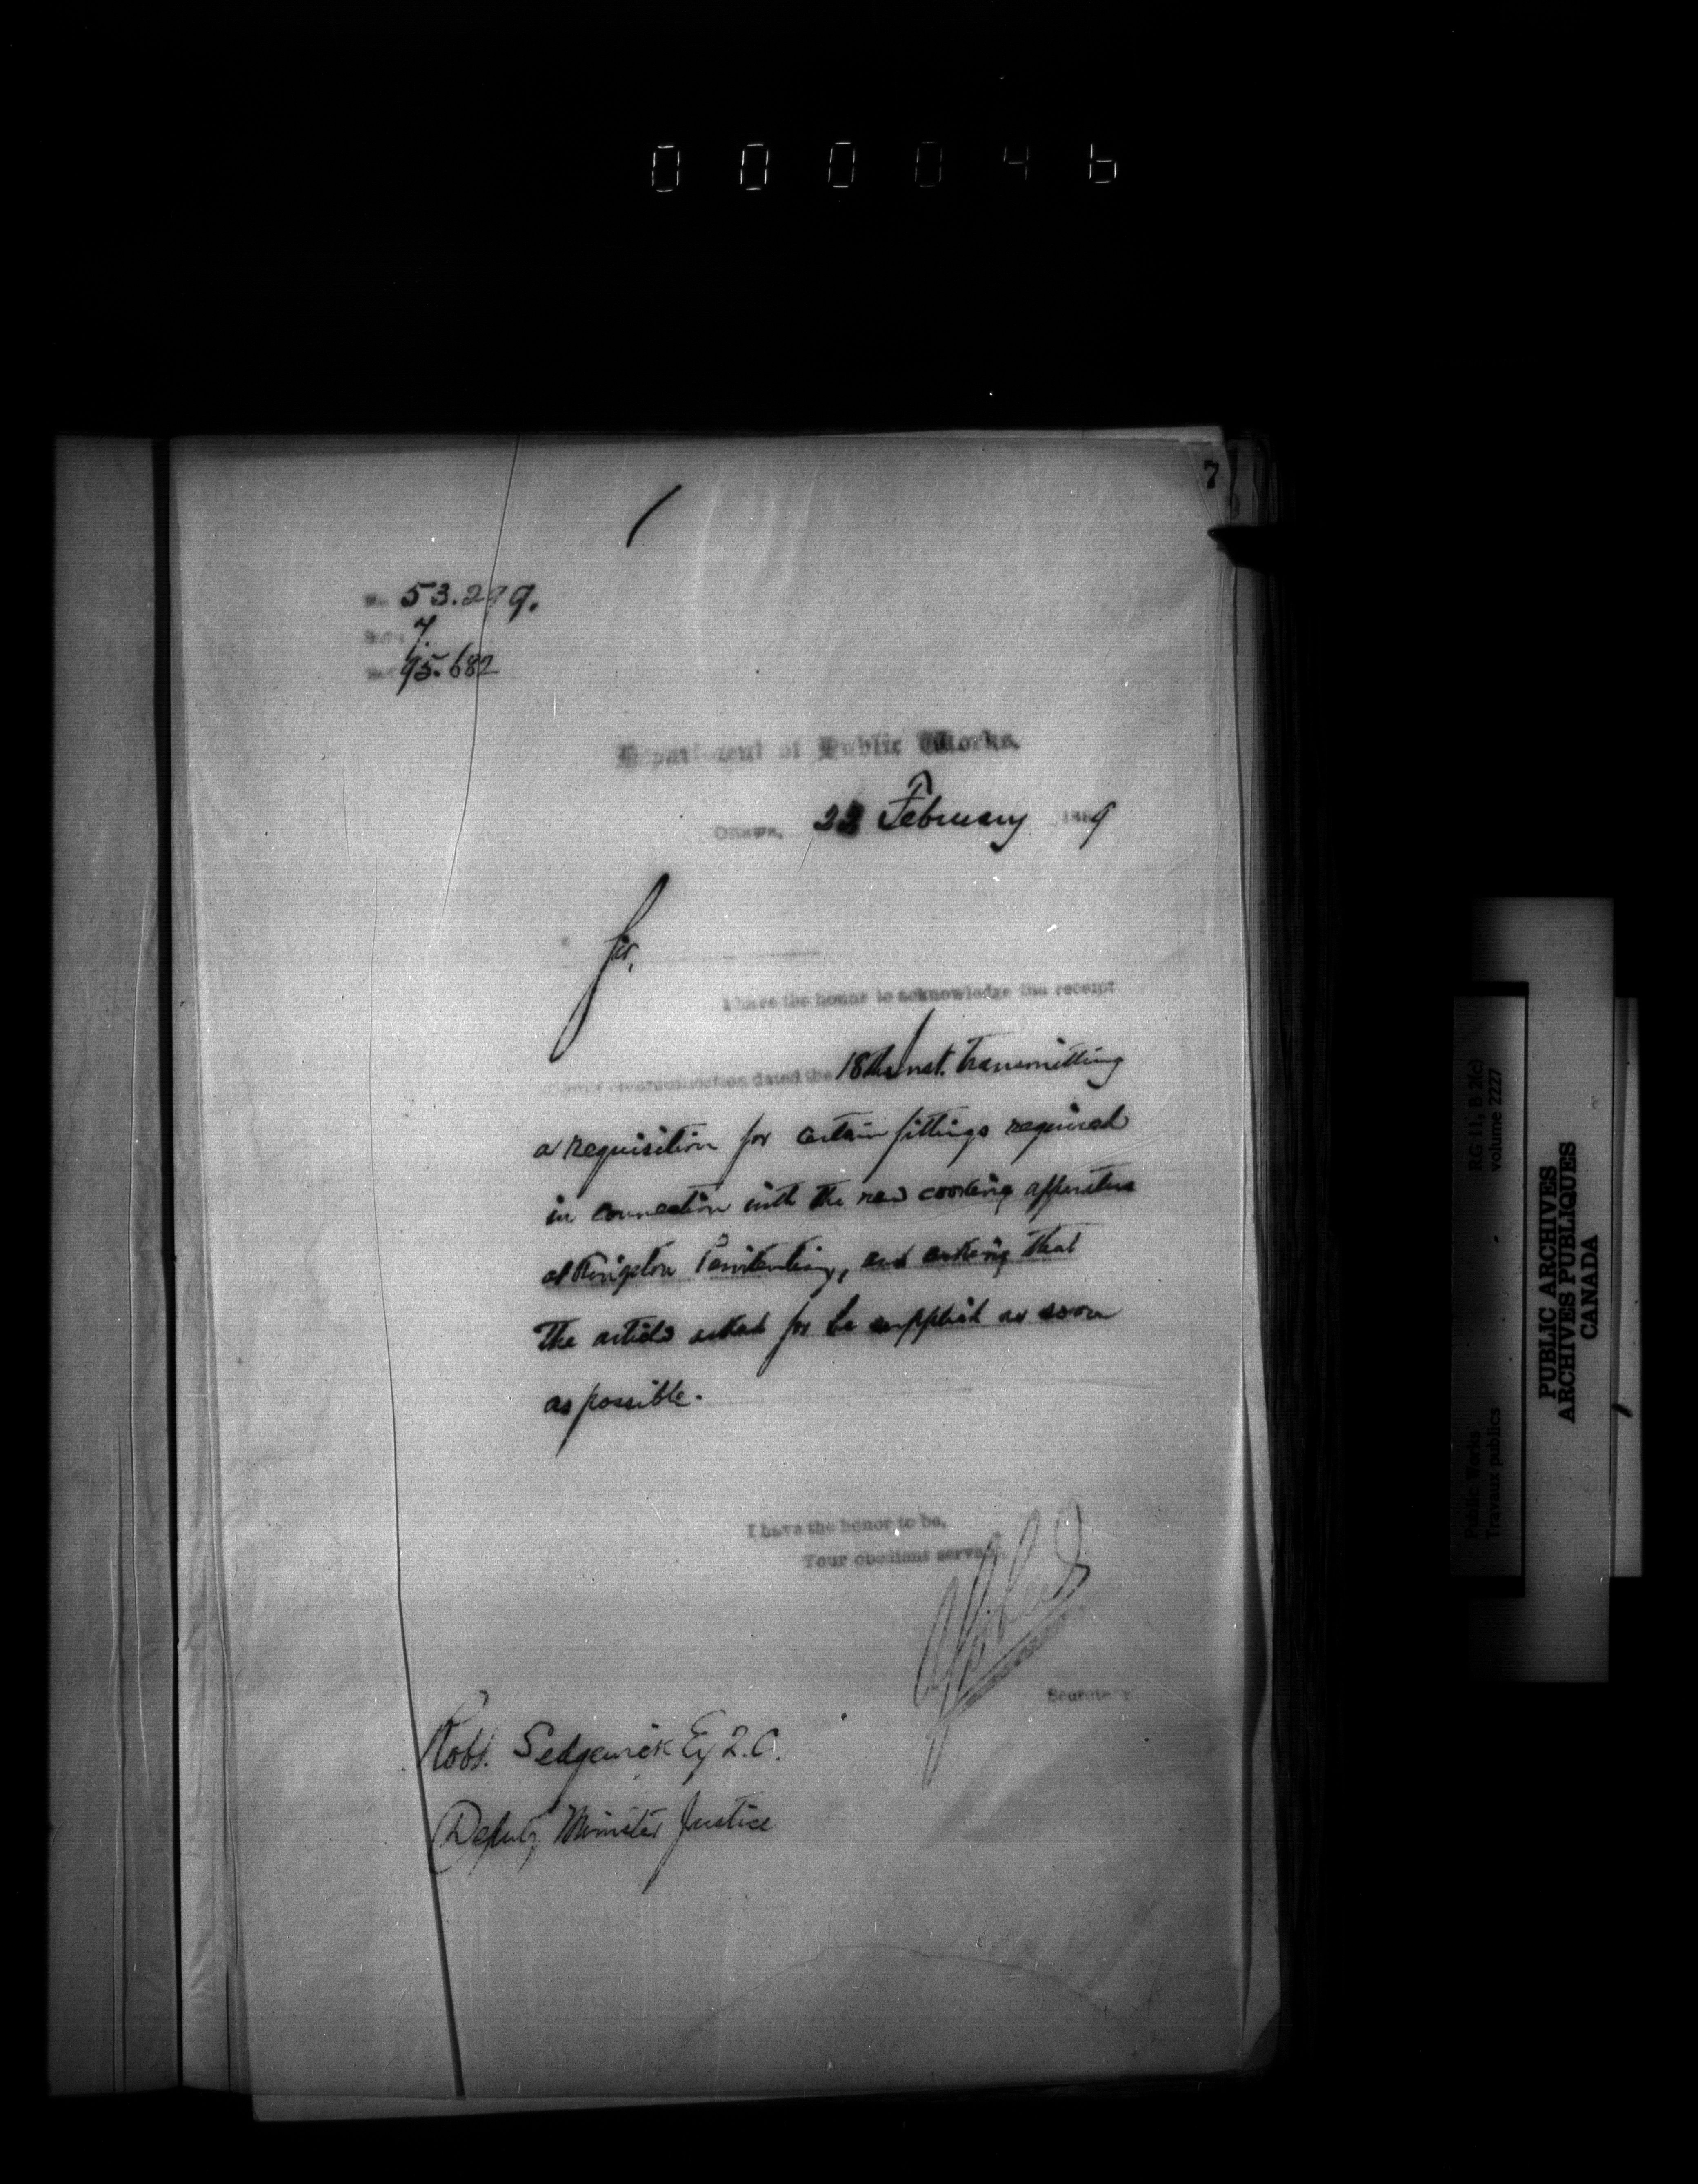 000046
7
No. 53.299.
Sub. 7.
Ref. 95.682
Department of Public Works.
Ottawa, 22 February 1889
Sir,
I have the honor to acknowledge the receipt
communication dated the 18th inst. transmitting
a requisition for certain fittings required
in connection with the new cooking apparatus
at Kingston Penitentiary, and asking that
the articles asked for be supplied as soon
as possible.
I have the honor to be,
Your obedient servant
Secretary
Robt. Sedgewick Esq Q.C.
Deputy Minister Justice
RG 11, B 2(c)
volume 2227
Public Works
Travaux publics
PUBLIC ARCHIVES
ARCHIVES PUBLIQUES
CANADA